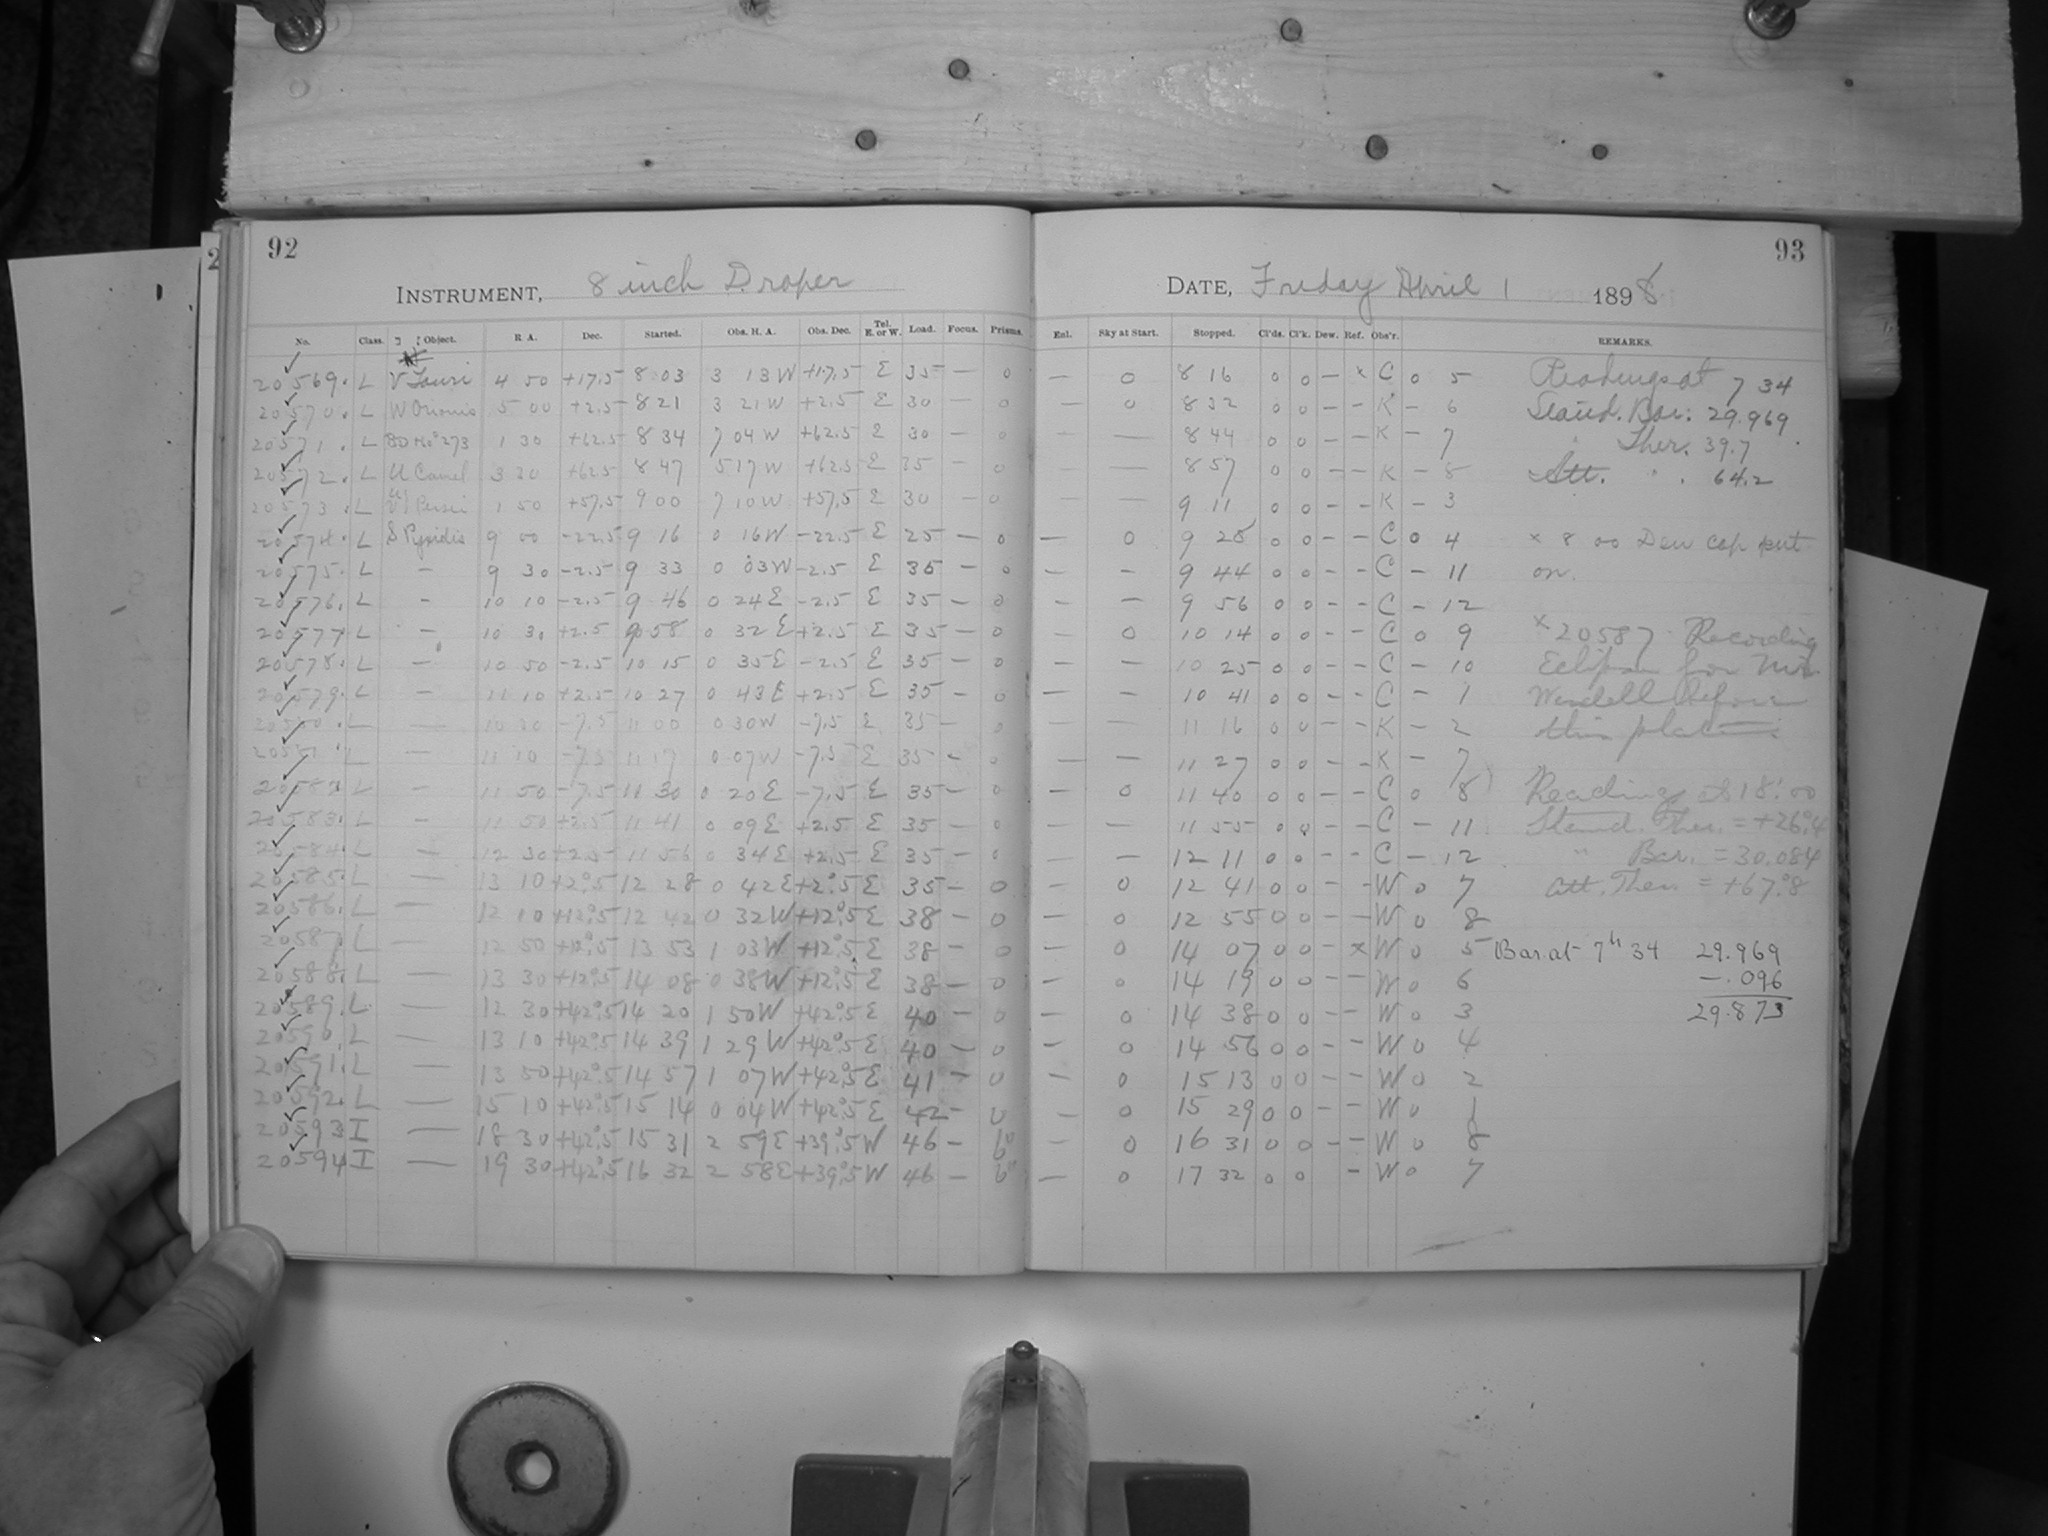 92
INSTRUMENT, 8 inch Draper
No. Class. Object. R. A. Dec. Started. Obs. H. A. Obs. Dec. Tel. E. or W. Load. Focus. Prisms.
20569. L V Tauri 4 50 +17.5 8 03 3 13 W +17.5 E 35 — 0
20570. L W Orionis 5 00 +2.5 8 21 3 21 W +2.5 E 30 — 0
20571. L 1 30 +62.5 8 34 7 04 W +62.5 E 30 — 0
20572. L U Camel 3 30 +62.5 8 47 5 17 W +62.5 E 35 — 0
20573. L Persei 1 50 +57.5 9 00 7 10 W +57.5 E 30 — 0
20574. L S Pyxidis 9 00 -22.5 9 16 0 16 W -22.5 E 25 — 0
20575. L — 9 30 -2.5 9 33 0 03 W -2.5 E 35 — 0
20576. L — 10 10 -2.5 9 46 0 24 E -2.5 E 35 — 0
20577. L — 10 30 +2.5 9 58 0 32 E +2.5 E 35 — 0
20578. L — 10 50 -2.5 10 15 0 35 E -2.5 E 35 — 0
20579. L — 11 10 +2.5 10 27 0 43 E +2.5 E 35 — 0
20580. L — 10 30 -7.5 11 00 0 30 W -7.5 E 35 — 0
20581. L — 11 10 -7.5 11 17 0 07 W -7.5 E 35 — 0
20582 L — 11 50 -7.5 11 30 0 20 E -7.5 E 35 — 0
20583. L — 11 50 +2.5 11 41 0 09 E +2.5 E 35 — 0
20584. L — 12 30 +2.5 11 56 0 34 E +2.5 E 35 — 0
20585. L — 13 10 +2°.5 12 28 0 42 E +2°.5 E 35 — 0
20586. L — 12 10 +12°.5 12 42 0 32 W +12°.5 E 38 — 0
20587. L — 12 50 +12°.5 13 53 1 03 W +12°.5 E 38 — 0
20588. L — 13 30 +12°.5 14 08 0 38 W +12°.5 E 38 — 0
20589. L. — 12 30 +42°.5 14 20 1 50 W +42°.5 E 40 — 0
20590. L — 13 10 +42°.5 14 39 1 29 W +42°.5 E 40 — 0
20591. L — 13 50 +42°.5 14 57 1 07 W +42°.5 E 41 — 0
20592. L — 15 10 +42°.5 15 14 0 04 W +42°.5 E 42 — 0
20593 I — 18 30 +42°.5 15 31 2 59 E +39°.5 W 46 —
20594 I — 19 30 +42°.5 16 32 2 58 E +39°.5 W 46 —
93
DATE, Friday April 1 1898
Enl. Sky at Start. Stopped. Cl'ds. Cl'k. Dew. Ref. Obs'r. REMARKS.
— 0 8 16 0 0 — x C 0 5 Readings at 7 34
— 0 8 32 0 0 — — K — 6 Stand. Bar: 29.969
— — 8 44 0 0 — — K — 7 " Ther. 39.7
— — 8 57 0 0 — — K — 8 Att. " . 64.2
— — 9 11 0 0 — — K — 3
— 0 9 28 0 0 — — C 0 4 x 8 00 Dew cap put
— — 9 44 0 0 — — C — 11 on.
— — 9 56 0 0 — — C — 12
— 0 10 14 0 0 — — C 0 9 x 20587 Recording
— — 10 25 0 0 — — C — 10 Eclipse for Mr.
— — 10 41 0 0 — — C — 1 Wendell before
— — 11 16 0 0 — — K — 2 this plate.
— — 11 27 0 0 — — K — 7
— 0 11 40 0 0 — — C 0 8 Readings at 18:00
— — 11 55 0 0 — — C — 11 Stand. Ther. = +26°.4
— — 12 11 0 0 — — C — 12 " Bar. = 30.084
— 0 12 41 0 0 — — W 0 7 Att. Ther. = +67°.8
— 0 12 55 0 0 — — W 0 8
— 0 14 07 0 0 — x W 0 5 Bar. at 7h 34 29.969
— 0 14 19 0 0 — — W 0 6 -.096
— 0 14 38 0 0 — — W 0 3 29.873
— 0 14 56 0 0 — — W 0 4
— 0 15 13 0 0 — — W 0 2
— 0 15 29 0 0 — — W 0 1
— 0 16 31 0 0 — — W 0 8
— 0 17 32 0 0 — W 0 7